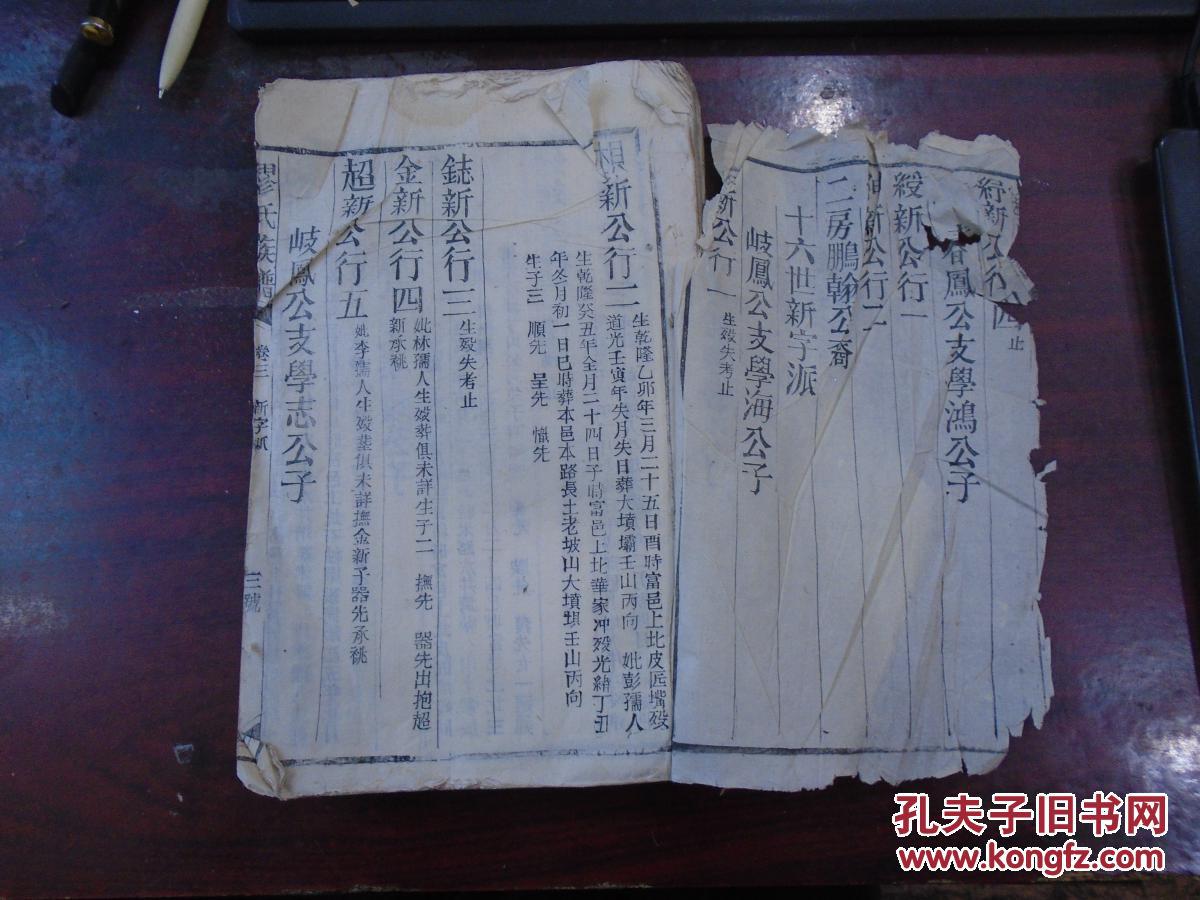 新公行四 止
春鳳公支學鴻公子
綬新公行一
新公行二
二房鵬翰公裔
十六世新字派
岐鳳公支學海公子
新公行一 生歿失考止
新公行二 生乾隆乙卯年三月二十五日酉時富邑上北皮匠嘴歿
道光壬寅年失月失日葬大墳壩壬山丙向 妣彭孺人
生乾隆癸丑年全月二十四日子時富邑上北華家冲歿光緒丁丑
年冬月初一日巳時葬本邑本路長土老坡山大墳壩壬山丙向
生子三 順先 呈先 先
鋕新公行三 生歿失考止
金新公行四 妣林孺人生歿葬俱未詳生子二 撫先 器先出抱超
新承祧
超新公行五 妣李孺人生歿塟俱未詳撫金新子器先承祧
岐鳳公支學志公子
氏族譜 卷三 新字派 三號
孔夫子旧书网
www.kongfz.com